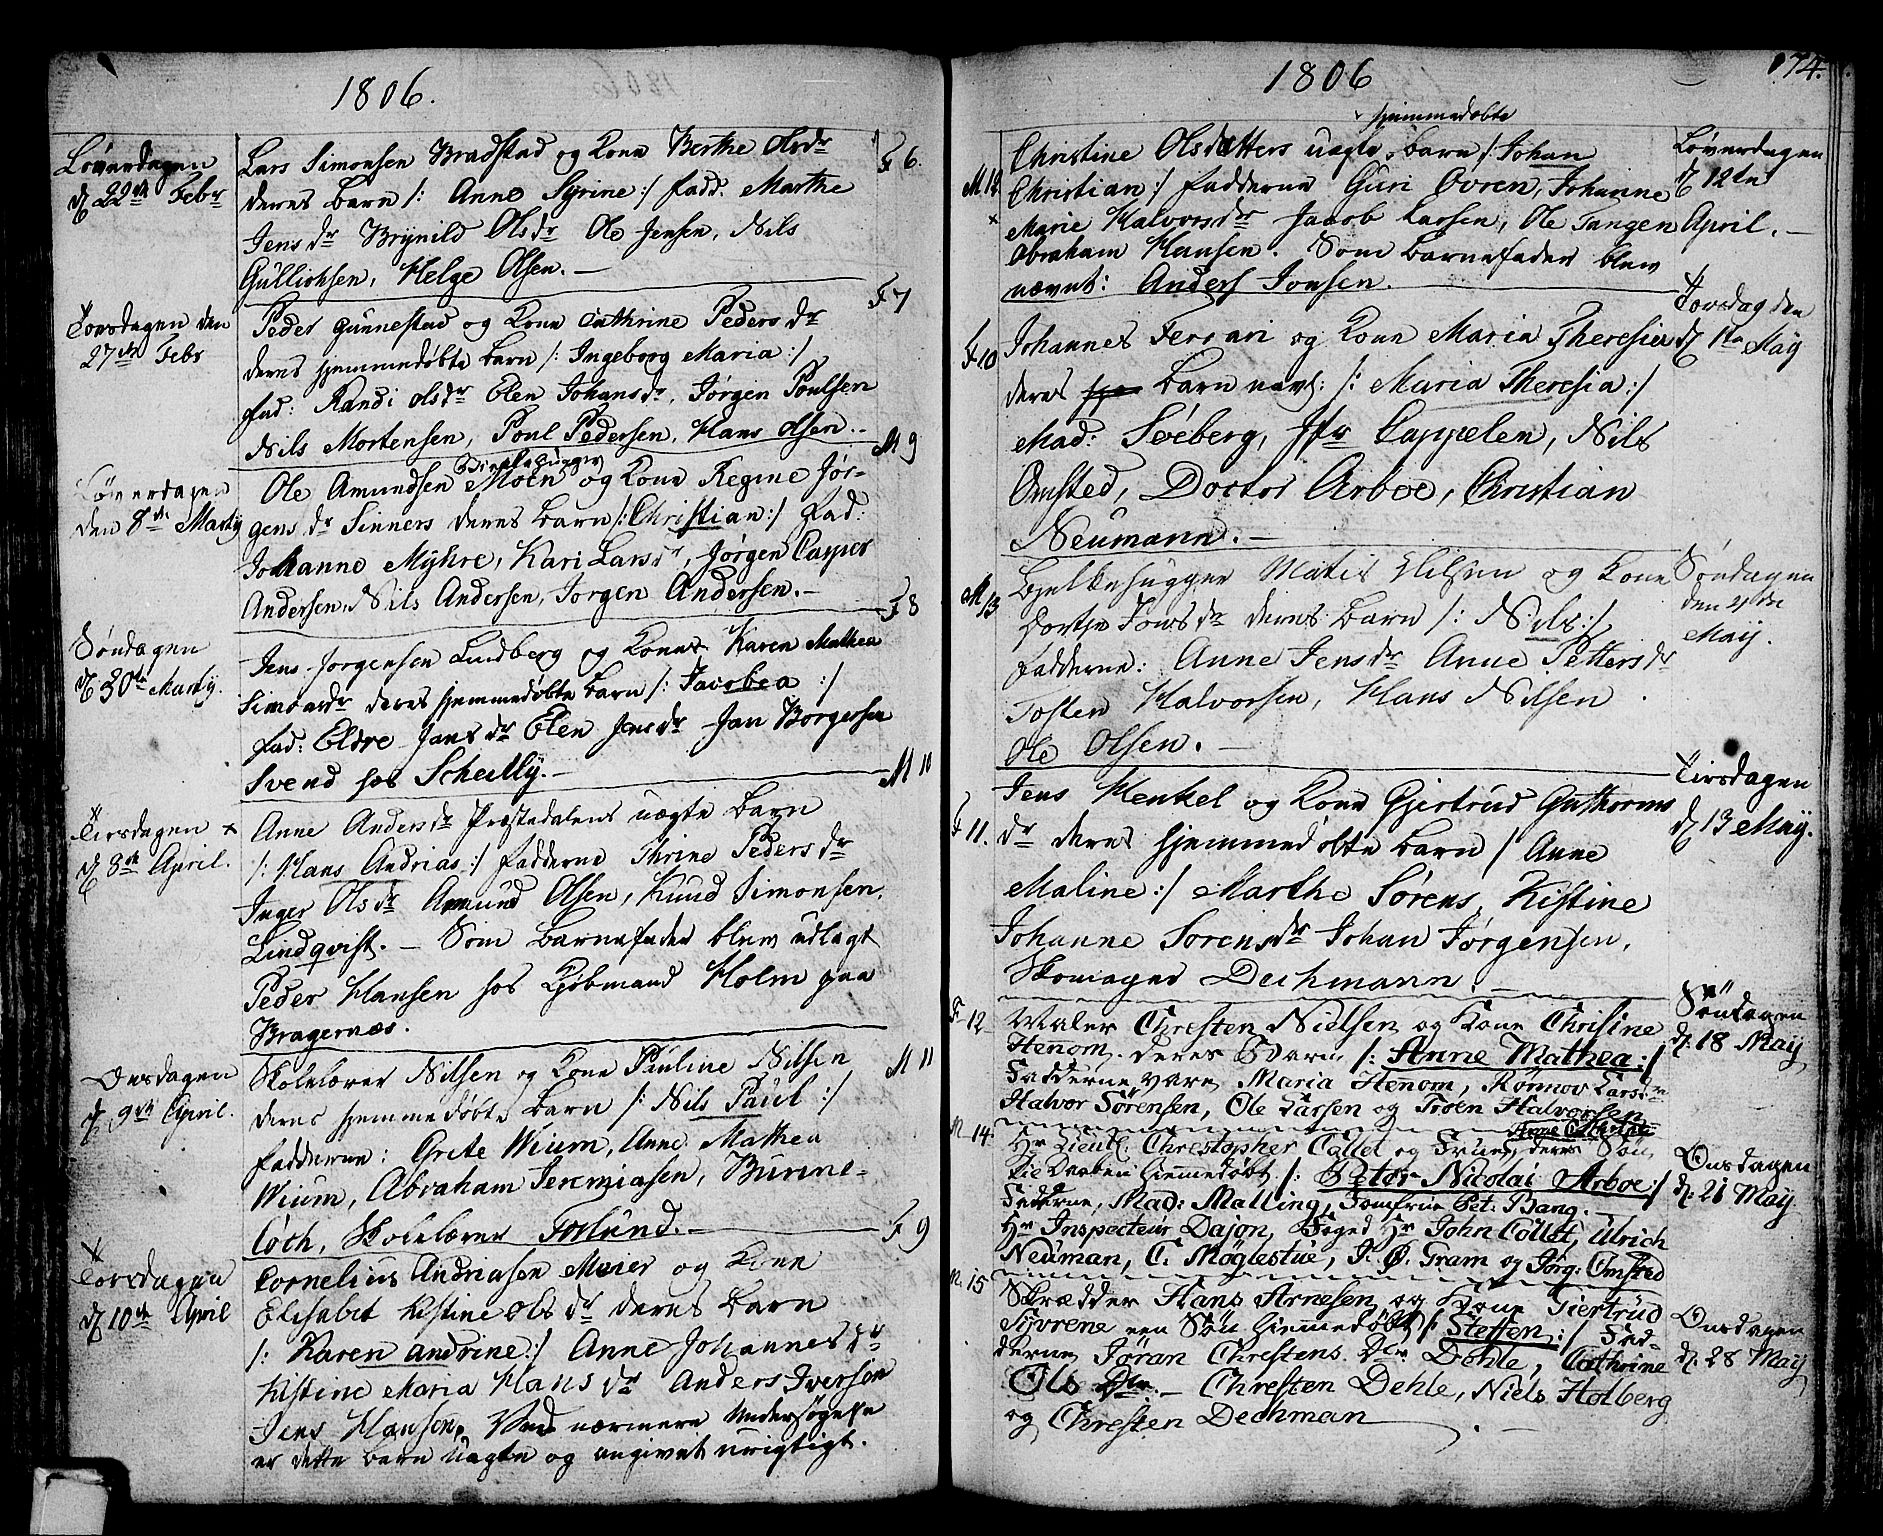 1806.
Løverdagen
d 22de Febr
Lars Simonsen Bradstad og Kone Berthe Olsdr
deres barn /: Anne Syrine :/ fadd. Marthe
Jensdr Brynild Olsdr Ole Jensen, Nils
Gullichsen, Helge Olsen. —
F 6
Torsdagen den
27de Febr
Peder Gunnestad og Kone Cathrine Pedersdr
deres hjemmedøbte barn /: Ingeborg Maria :/
fad: Randi Olsdr Elen Johansdr, Jørgen Poulsen
Nils Mortensen, Poul Pedersen, Hans Olsen. —
F 7
Løverdagen
den 8de Martij
Ole Amundsen Moen og Kone Regine Jør-
gensdr Sinners deres barn /: Christian :/ Fad:
Johanne Myhre, Kari Larsdr, Jørgen Casper
Andersen, Nils Andersen, Jørgen Andersen. —
M 9
Søndagen
d 30te Martij.
Jens Jørgensen Lindberg og Kone Karen Mathea
Simonsdr deres hjemmedøbte barn /: Jacobea :/
fad: Eldre Jansdr Elen Jensdr Jan Borgersen
Svend hos Scheitly. —
F 8
Tirsdagen ×
d 8de April.
Anne Andersdr Præstedalens uægte barn
/: Hans Andrias :/ fadderne Thrine Pedersdr
Inger Olsdr Amund Olsen, Knud Simonsen,
Lindqvist. — Som barnefader blev udlagt
Peder Hansen hos Kjøbmand Holm paa
Bragernæs.
M 10
Onsdagen
d 9de April.
Skolelærer Nilsen og Kone Pauline Nilsen
deres hjemmedøbte barn /: Nils Paul :/
fadderne: Grete Wium, Anne Mathea
Wium, Abraham Jeremiasen,
Coch, Skolelærer Forlund. —
M 11
×
Torsdagen
d 10de April
Cornelius Andriasen Meier og Kone
Elisabet Kistine Olsdr deres barn
/: Karen Andrine :/ Anne Johannesdr
Kistine Maria Hansdr Anders Iversen
Jens Hansen. Ved nærmere Undersøgelse
er dette barn uægte og angivet urigtigt.
F 9
1806
174.
hjemmedøbte
M 12
×
Christine Olsdatters uægte barn /: Johan
Christian :/ fadderne Guri Ovren, Johanne
Marie Halvorsdr Jacob Larsen, Ole Tangen
Abraham Hansen. Som barnefader blev
nævnt: Anders Jonsen. —
Løverdagen
d 12te
April. —
F 10
Johannes Ferrari og Kone Maria Theresia
deres barn navl: /: Maria Theresia :/
Mad: Seeberg, Jfr Cappelen, Nils
Omsted, Doctor Arboe, Christian
Neumann. —
Torsdag den
d 1te May
M 13
Bjelkehugger Matis Nilsen og Kone
Dorthe Jonsdr deres barn /: Nils :/
fadderne: Anne Jensdr Anne Pettersdr
Tosten Halvorsen, Hans Nilsen
Ole Olsen. —
Søndagen
den
May.
F 11.
Jens Henkel og Kone Gjertrud Guthorms
dr deres hjemmedøbte barn /: Anne
Maline :/ Marthe Sørens, Kistine
Johanne Sorensdr Johan Jørgensen,
Skomager Dechmann. —
Tirsdagen
d 13 May.
F 12
Maler Chresten Nielsen og Kone Christine
Henom. deres Barn /: Anne Mathea :/
Fadderne vare Maria Henom, Rønnov Larsdr
Halvor Sørensen, Ole Larsen og Troen Halvorsen
Søndagen
d: 18 May
M. 14.
Hr Lieut. Christopher Collet og Frue deres Søn,
hiemmedøbt /: Peter Nicolai Arboe :/
Fadderne, Mad: Malling, Jomfrue Pet: Bang.
Hr Inspecteur Dajon, Foged Hr John Collet, Ulrich
Neuman, C. Møglestue, J. Ø. Gram og Jørg: Omsted
Onsdagen
d: 21 May.
M. 15
Skrædder Hans Arnesen og Kone Giertrud
Syvrene een Søn hiemmedøbt /: Steffen :/ Fad-
derne Jøran Chrestens. Dtr Dehle, Cathrine
Ols Dtr. — Chresten Dehle, Niels Holberg
og Chresten Dechman
Onsdagen
d: 28 May